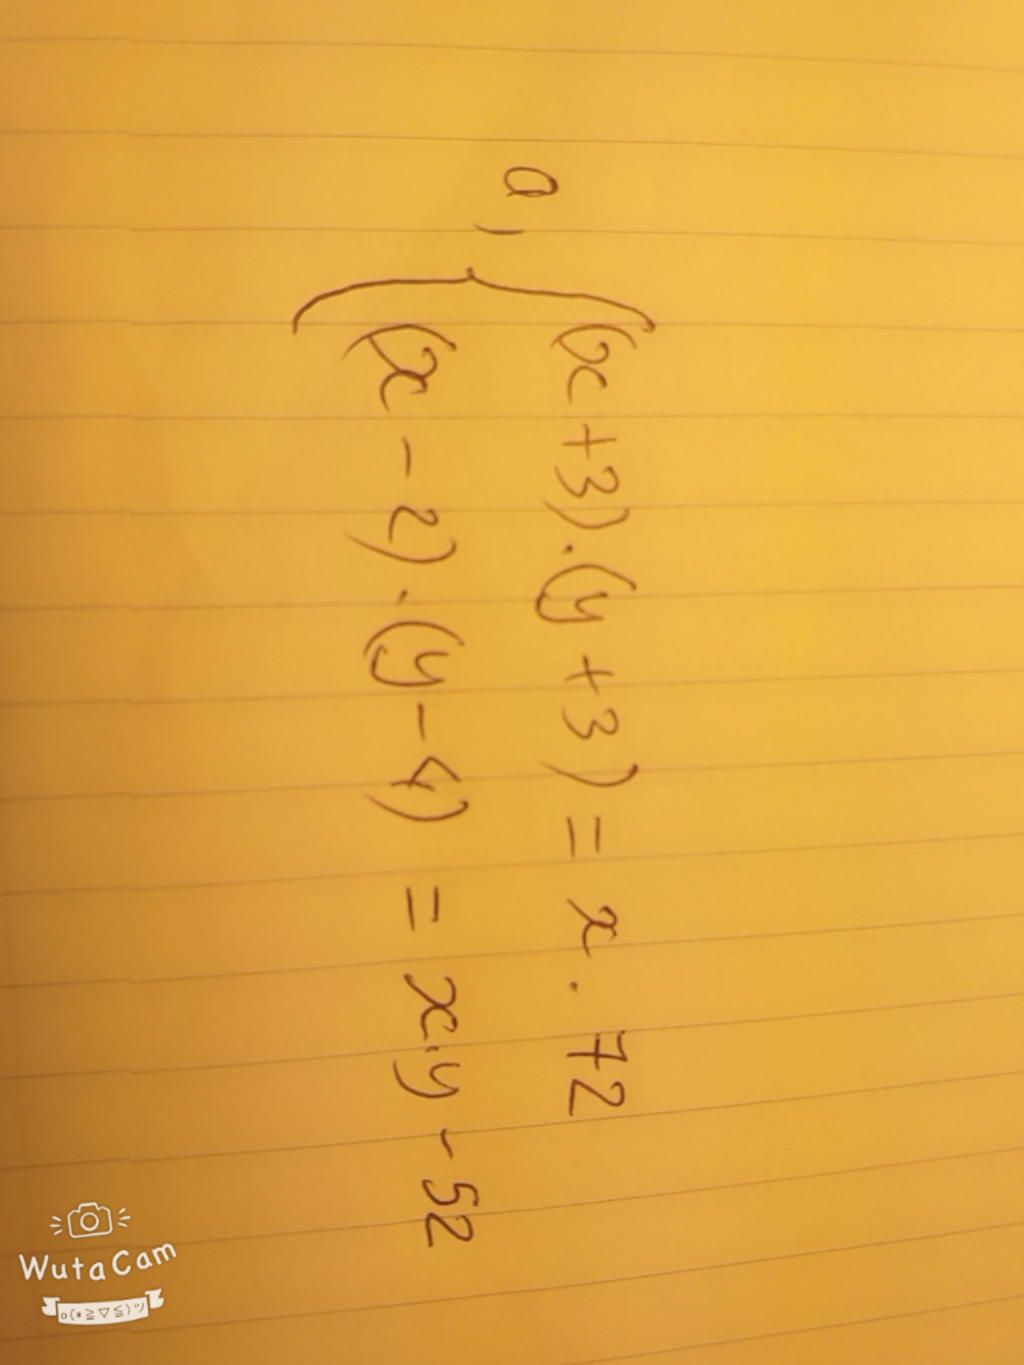 a, { (x + 3) . (y + 3) = x . 72
(x - 2) . (y - 4) = x.y - 52
WutaCam
o(*≧▽≦)ツ